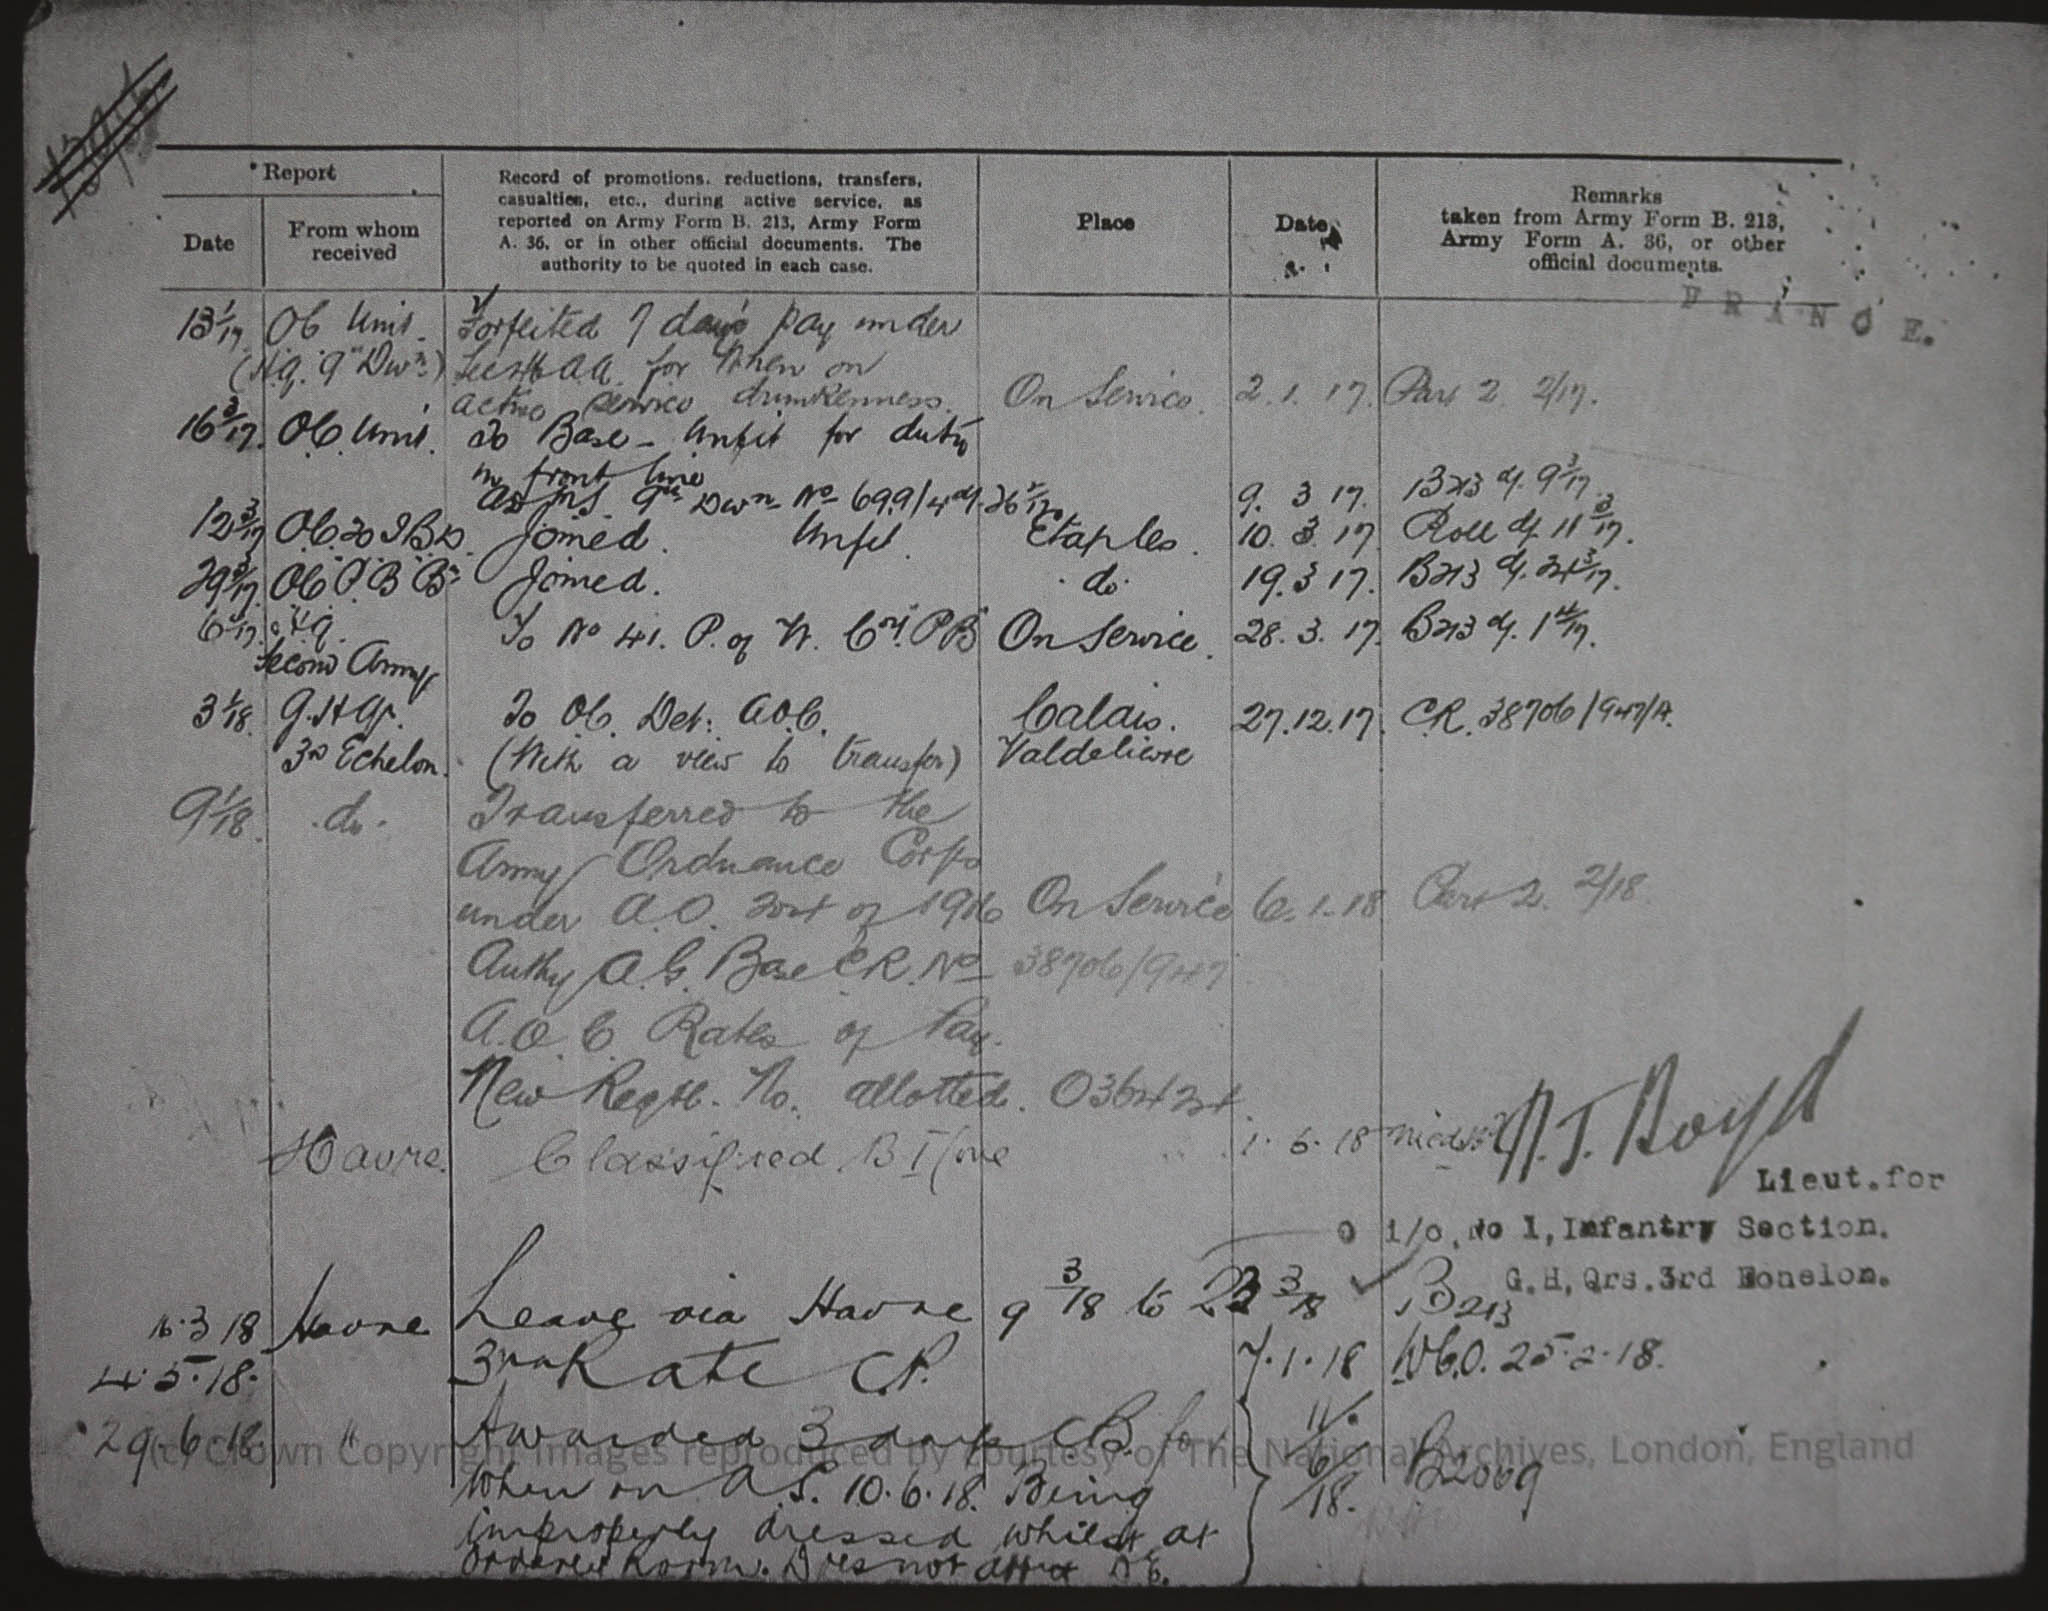 Report
Date
From whom received
Record of promotions, reductions, transfers,
casualties, etc., during active service, as
reported on Army Form B. 213, Army Form
A. 36, or in other official documents. The
authority to be quoted in each case.
Place
Date
Remarks
taken from Army Form B. 213,
Army Form A. 36, or other
official documents.
FRANCE.
13/1/17 OC Unit Forfeited 7 days pay under
(H.Q. 9th Divn) Sec 46 AA for When on
active service drunkenness. On Service. 2.1.17. Part 2 2/17.
16/3/17. OC. Unit. To Base - Unfit for duty
in front line
9th Divn No 699/4 d/. 26 9. 3 17. B213 d/. 9/3/17
12/3/17 OC. 20 IBD. Joined. Unfit. Etaples. 10. 3. 17. Roll d/. 11/3/17.
29/3/17. OC P.B Bn Joined. do. 19.3 17. B213 d/. 24/3/17.
6/4/17. HQ. To No 41. P. of W. Coy. PB On Service. 28. 3. 17. B213 d/. 1/4/17.
Second Army
3/1/18. G.H.Qrs. To OC. Det: AOC. Calais. 27.12.17. CR. 38706/947/A.
3rd Echelon. (With a view to transfer) Valdelievre
9/1/18. do. Transferred to the
Army Ordnance Corps
under A.O. 204 of 1916 On Service 6.1.18 Part 2. 2/18.
Authy A.G. Base CR. No 38706/947
A.O.C Rates of Pay.
New Regtl. No. allotted. 036424.
Havre. Classified B I (one 1. 6. 18
N.T. Boyd
Lieut. for
O i/c, No 1, Infantry Section.
G.H.Qrs. 3rd Echelon.
16.3 18 Havre Leave via Havre 9 3/18 to 23 3/18 B213
4.5.18. 3rd Rate C.P. 7.1.18 W.C.O. 25.2.18.
29.6.18. " Awarded 3 days CB. for 11/6/18. B2069
When on A.S. 10.6.18. Being
improperly dressed whilst at
Orderly Room. Does not affect
(c) Crown Copyright Images reproduced by courtesy of The National Archives, London, England